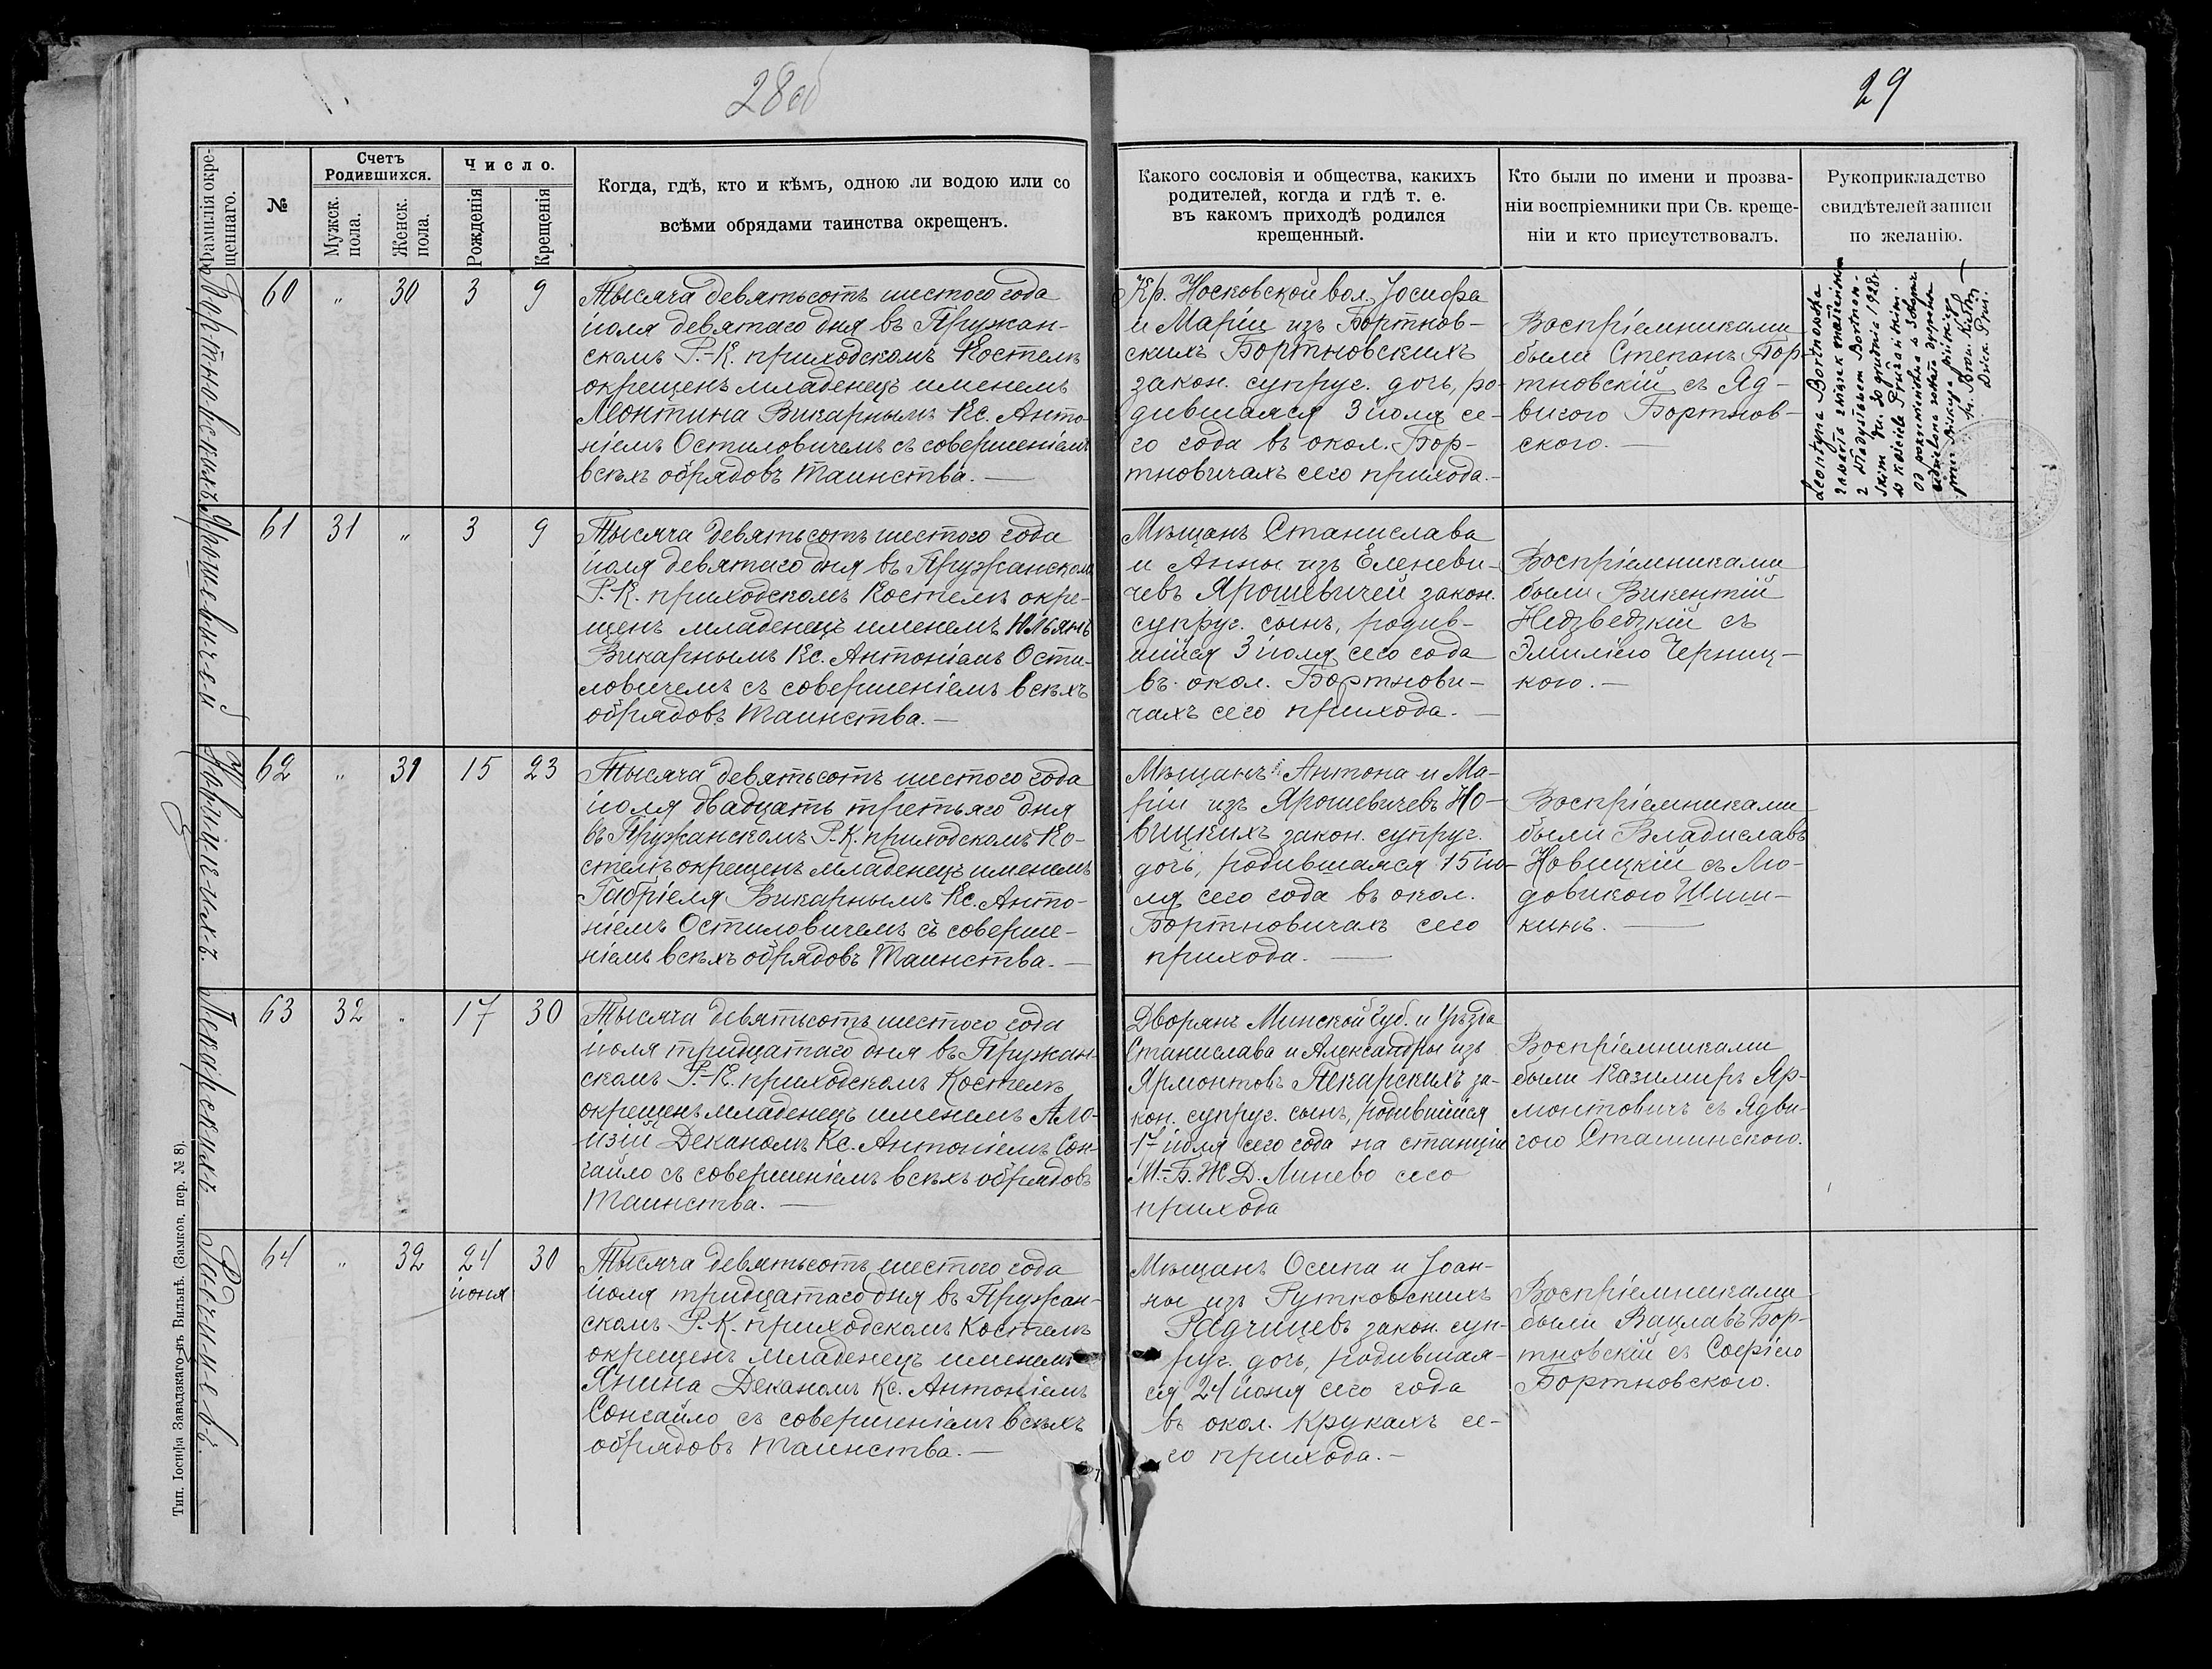 28об
29
Фамилія окре-
щеннаго.
№
Счетъ
Родившихся.
Мужск.
пола.
Женск.
пола.
Число.
Рожденія
Крещенія
Когда, гдѣ, кто и кѣмъ, одною ли водою или со
всѣми обрядами таинства окрещенъ.
Какого сословія и общества, какихъ
родителей, когда и гдѣ т. е.
въ какомъ приходѣ родился
крещенный.
Кто были по имени и прозва-
ніи воспріемники при Св. креще-
ніи и кто присутствовалъ.
Рукоприкладство
свидѣтелей записи
по желанію.
Бортновскихъ
60 „ 30 3 9
Тысяча девятьсотъ шестого года
іюля девятаго дня въ Пружан-
скомъ Р.-К. приходскомъ Костелѣ
окрещенъ младенецъ именемъ
Леонтина Викарнымъ Кс. Анто-
ніемъ Остиловичемъ съ совершеніемъ
всѣхъ обрядовъ Таинства. —
Кр. Носковской вол. Іосифа
и Маріи изъ Бортнов-
скихъ Бортновскихъ
закон. супруг. дочь, ро-
дившаяся 3 іюля се-
го года въ окол. Бор-
тновичахъ сего прихода. -
Воспріемниками
были Степанъ Бор-
тновскій съ Яд-
вигою Бортнов-
ского. —
Leontyna Bortnowska
zawarła związek małżeński
z Władysławem Bortnow-
skim dn. 30 grudnia 1928 r.
w kościele Prużańskim.
Ks. Bron.
Dziek. Pruż.
Ярошевичей
61 31 „ 3 9
Тысяча девятьсотъ шестого года
іюля девятаго дня въ Пружанскомъ
Р.-К. приходскомъ Костелѣ окре-
щенъ младенецъ именемъ Юльянъ
Викарнымъ Кс. Антоніемъ Ости-
ловичемъ съ совершеніемъ всѣхъ
обрядовъ Таинства. —
Мѣщанъ Станислава
и Анны изъ Еленеви-
чевъ Ярошевичей закон.
супруг. сынъ, родив-
шійся 3 іюля сего года
въ окол. Бортнови-
чахъ сего прихода. —
Воспріемниками
были Викентій
Недзведзкій съ
Эмиліею Черниц-
кою. —
Новицкихъ
62 „ 31 15 23
Тысяча девятьсотъ шестого года
іюля двадцать третьяго дня
въ Пружанскомъ Р.-К. приходскомъ Ко-
стелѣ окрещенъ младенецъ именемъ
Габріеля Викарнымъ Кс. Анто-
ніемъ Остиловичемъ съ соверше-
ніемъ всѣхъ обрядовъ Таинства. —
Мѣщанъ Антона и Ма-
ріи изъ Ярошевичевъ Но-
вицкихъ закон. супруг.
дочь, родившаяся 15 ію-
ля сего года въ окол.
Бортновичахъ сего
прихода. —
Воспріемниками
были Владиславъ
Новицкій съ Лю-
довикою Шиш-
кинъ. —
Пекарскихъ
63 32 „ 17 30
Тысяча девятьсотъ шестого года
іюля тридцатаго дня въ Пружан-
скомъ Р.-К. приходскомъ Костелѣ
окрещенъ младенецъ именемъ Ало-
изій Деканомъ Кс. Антоніемъ Сон-
гайло съ совершеніемъ всѣхъ обрядовъ
Таинства. —
Дворянъ Минской Губ. и Уѣзда
Станислава и Александры изъ
Ярмонтовъ Пекарскихъ за-
кон. супруг. сынъ, родившійся
17 іюля сего года на станціи
М.-Б. Ж.Д. Линево сего
прихода
Воспріемниками
были Казимиръ Яр-
монтовичъ съ Ядви-
гою Сташинского.
Радчицевъ.
64 „ 32 24 30
іюня
Тысяча девятьсотъ шестого года
іюля тридцатаго дня въ Пружан-
скомъ Р.-К. приходскомъ Костелѣ
окрещенъ младенецъ именемъ
Янина Деканомъ Кс. Антоніемъ
Сонгайло съ совершеніемъ всѣхъ
обрядовъ Таинства. —
Мѣщанъ Осипа и Іоан-
ны изъ Рутковскихъ
Радчицевъ закон. суп-
руг. дочь, родившая-
ся 24 іюня сего года
въ окол. Крукахъ се-
го прихода. —
Воспріемниками
были Вацлавъ Бор-
тновскій съ Софіею
Бортновского.
Тип. Іосифа Завадзкаго въ Вильнѣ. (Замков. пер. № 8).